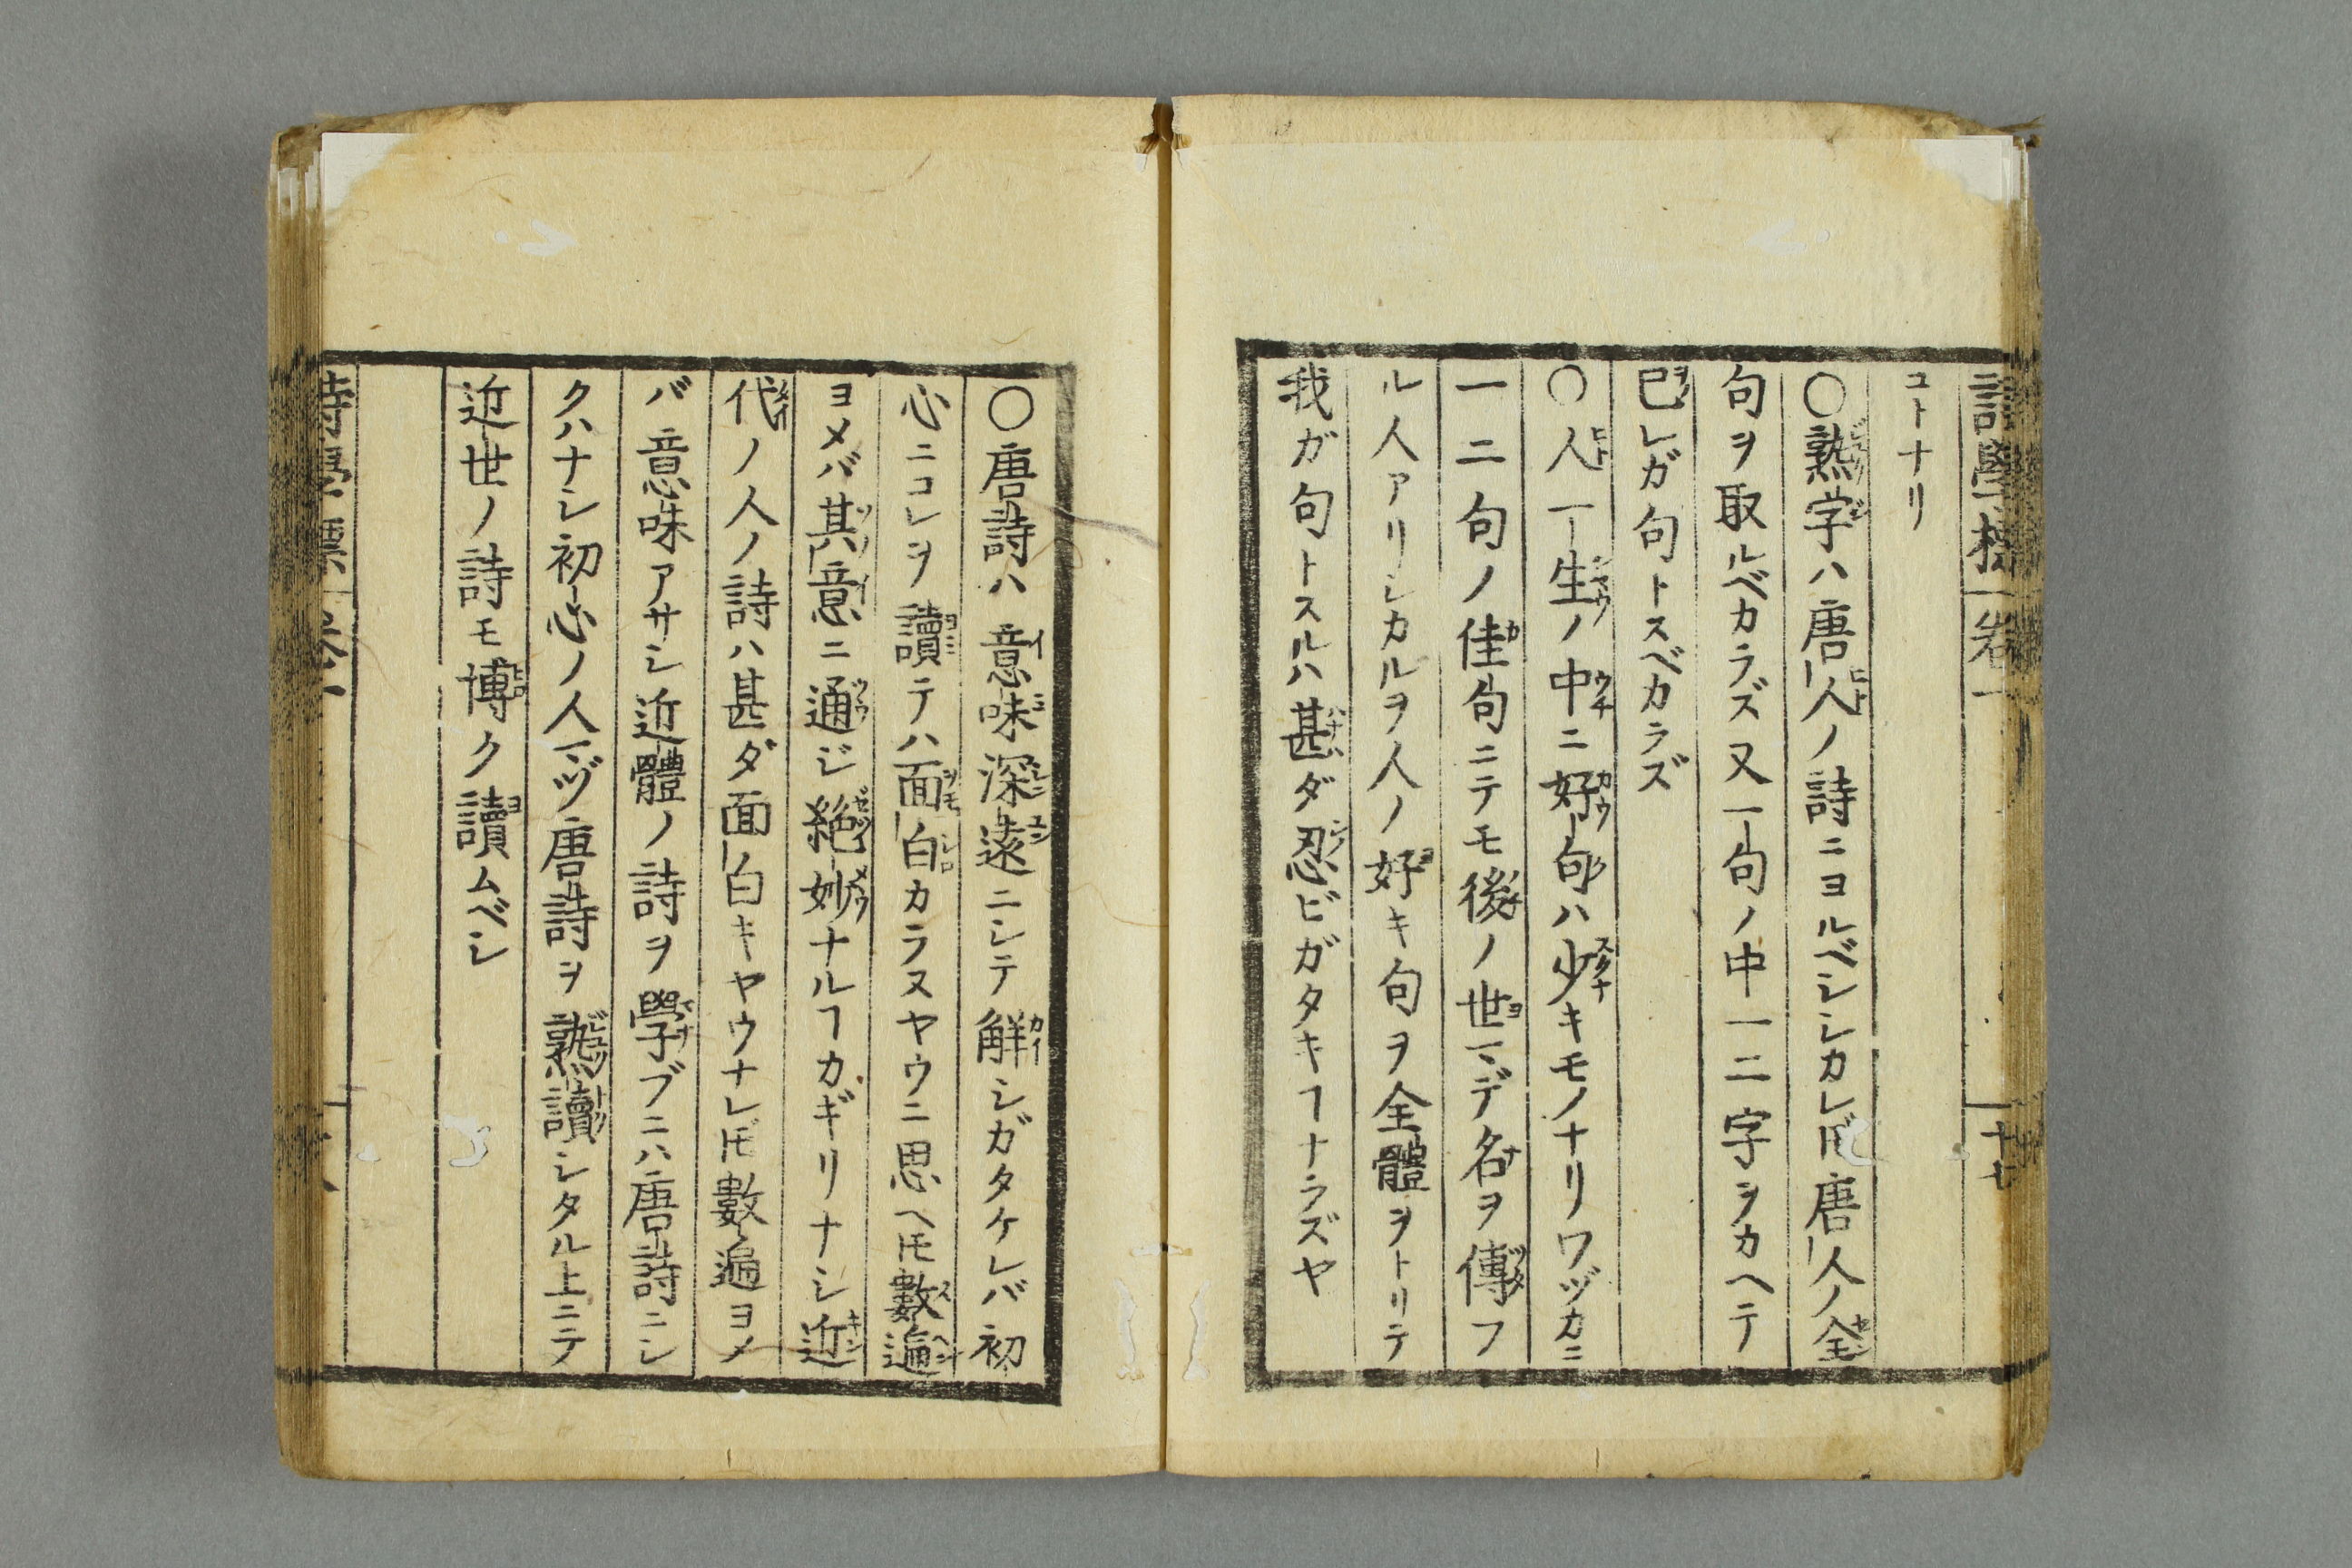 コトナリ
○熟字ハ唐人ノ詩ニヨルベシシカレ𪜈唐人ノ全
句ヲ取ルベカラズ又一句ノ中一二字ヲカヘテ
已レガ句トスベカラズ
○人一生ノ中ニ好句ハ少キモノナリワヅカニ
一二句ノ佳句ニテモ後ノ世マデ名ヲ傳フ
ル人アリシカルヲ人ノ好キ句ヲ全體ヲトリテ
我ガ句トスルハ甚ダ忍ビガタキヿナラズヤ
○唐詩ハ意味深遠ニシテ解シガタケレバ初
心ニコレヲ讀テハ面白カラヌヤウニ思ヘ𪜈數遍
ヨメバ其意ニ通ジ絶妙ナルヿカギリナシ近
代ノ人ノ詩ハ甚ダ面白キヤウナレ𪜈數遍ヨメ
バ意味アサシ近體ノ詩ヲ學ブニハ唐詩ニシ
クハナシ初心ノ人マヅ唐詩ヲ熟讀シタル上ニテ
近世ノ詩モ博ク讀ムベシ